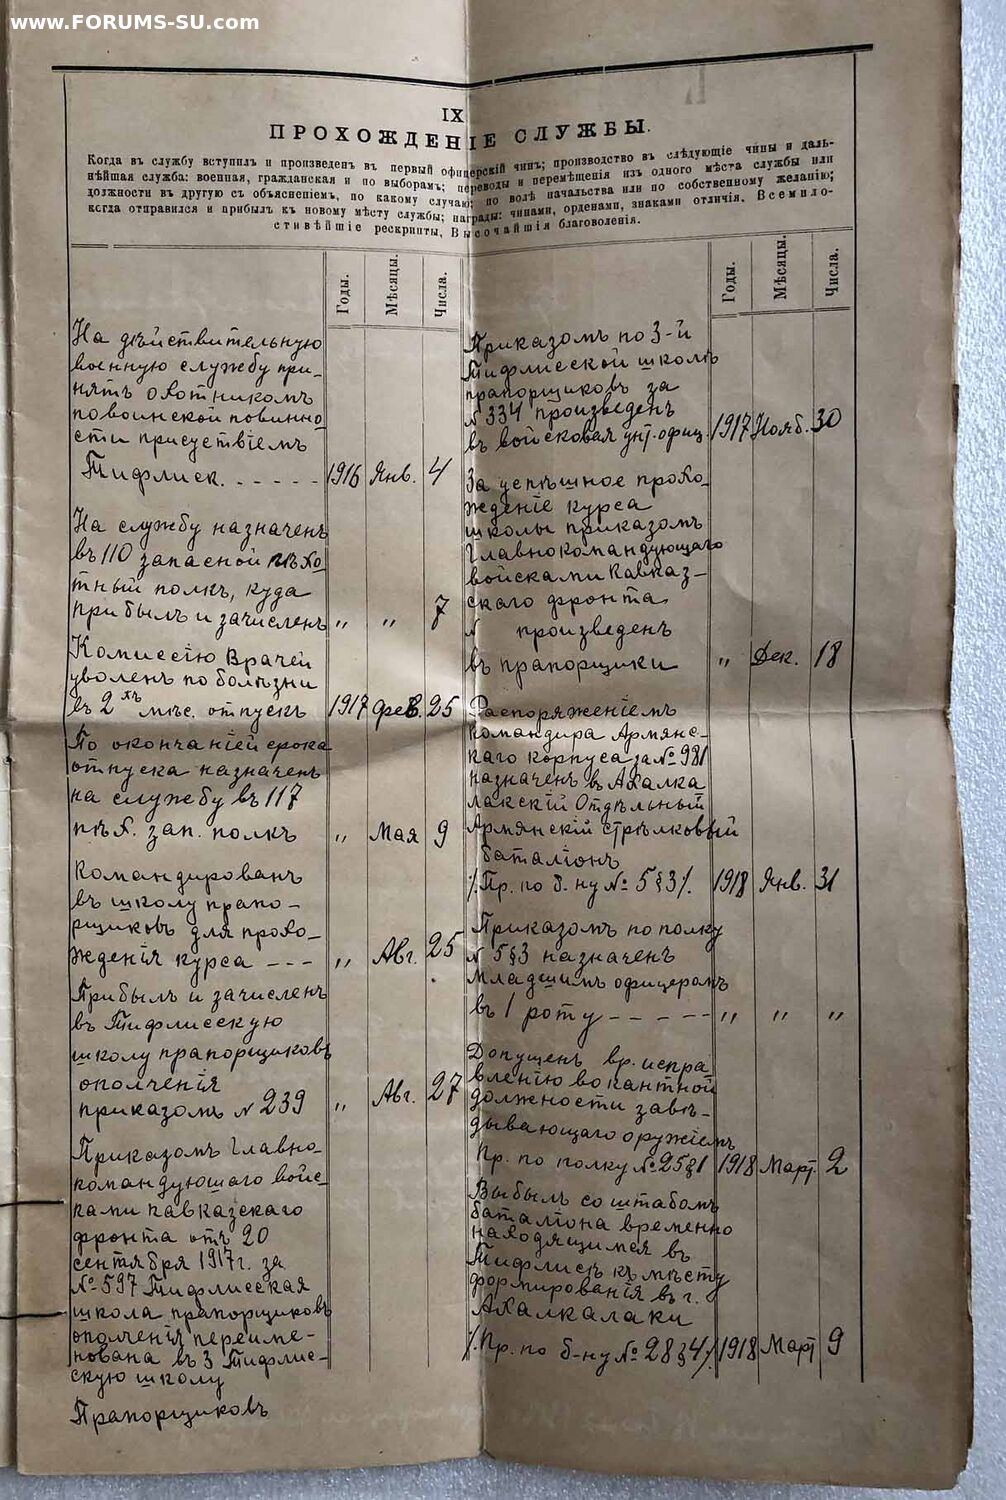 www.FORUMS-SU.com
IX
ПРОХОЖДЕНІЕ СЛУЖБЫ.
Когда въ службу вступилъ и произведенъ въ первый офицерскій чинъ; производство въ слѣдующіе чины и даль-
нѣйшая служба: военная, гражданская и по выборамъ; переводы и перемѣщенія изъ одного мѣста службы или
должности въ другую съ объясненіемъ, по какому случаю: по волѣ начальства или по собственному желанію;
когда отправился и прибылъ къ новому мѣсту службы; награды: чинами, орденами, знаками отличія, Всемило-
стивѣйшіе рескрипты, Высочайшія благоволенія.
Годы. Мѣсяцы. Числа.
На дѣйствительную
военную службу при-
нятъ охотникомъ
по воинской повинно
сти присуствіемъ
Тифлиск. - - - - - 1916 Янв. 4
На службу назначенъ
въ 110 запасной пѣхо-
тный полкъ, куда
прибылъ и зачисленъ „ „ 7
Комиссію Врачей
уволенъ по болѣзни
въ 2хъ мѣс. отпускъ 1917 Фев. 25
По окончаніей срока
отпуска назначенъ
на службу въ 117
пѣх. зап. полкъ „ Мая 9
Командированъ
въ школу прапо-
рщиковъ для прохо-
жденія курса - - - „ Авг. 25
Прибылъ и зачисленъ
въ Тифлисскую
школу прапорщиковъ
ополченія
приказомъ № 239 „ Авг. 27
Приказомъ Главно-
командующаго войс-
ками кавказскаго
фронта отъ 20
сентября 1917г. за
№ 597 Тифлисская
школа прапорщиковъ
ополченія переиме-
нована въ 3 Тифлис-
скую школу
Прапорщиковъ
Годы. Мѣсяцы. Числа.
Приказомъ по 3-й
Тифлисской школѣ
прапорщиковъ за
№ 334 произведенъ
въ войсковая унт.-офиц. 1917 Нояб. 30
За успѣшное прохо-
жденіе курса
школы приказомъ
Главнокомандующаго
войсками Кавказ-
скаго фронта
№ произведенъ
въ прапорщики „ Дек. 18
Распоряженіемъ
командира Армянс-
каго корпуса за № 981
назначенъ въ Ахалка
лакскій Отдѣльный
Армянскій стрѣлковый
баталіонъ
/.Пр. по б. ну № 5 § 3/. 1918 Янв. 31
Приказомъ по полку
№ 5 § 3 назначенъ
младшимъ офицеромъ
въ 1 роту - - - - - „ „ „
Допущенъ вр. испра
вленію вокантной
должности завѣ-
дывающаго оружіемъ
Пр. по полку № 25 § 1 1918 Март. 2
Выбылъ со штабомъ
баталіона временно
находящимся въ
Тифлисѣ къ мѣсту
формированія въ г.
Ахалкалаки
/.Пр. по б-ну № 28 § 4/. 1918 Март 9